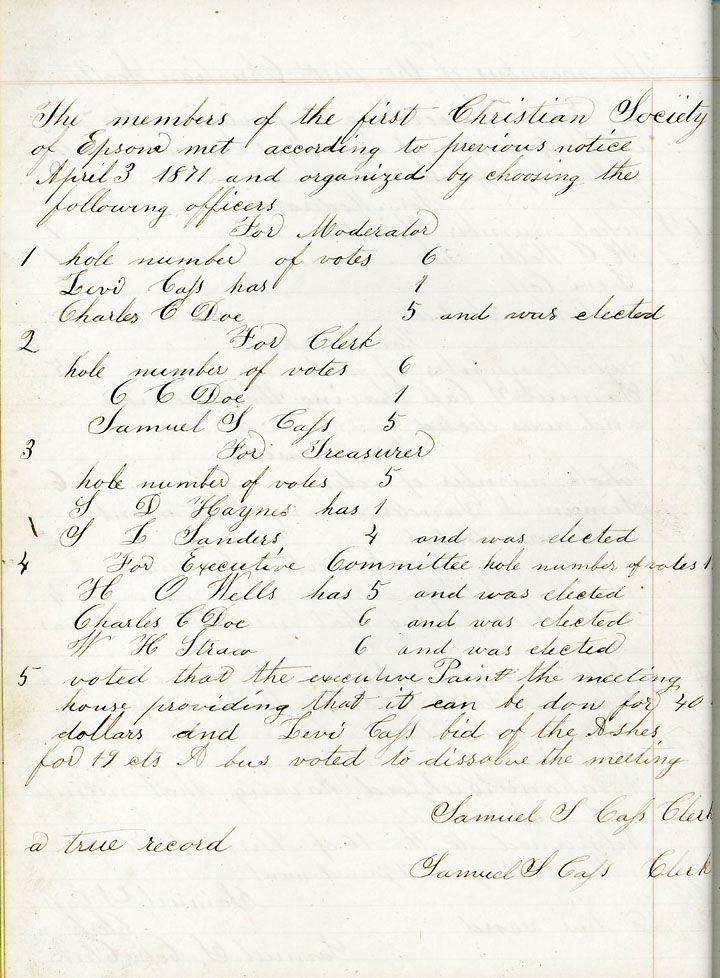 The members of the first Christian Society
of Epsom met according to previous notice
April 3 1871 and organized by choosing the
following officers
For Moderator
1 hole number of votes 6
Levi Cass has 1
Charles C Doe 5 and was elected
2 For Clerk
hole number of votes 6
C C Doe 1
Samuel S Cass 5
3 For Treasurer
hole number of votes 5
S D Haynes has 1
S L Sanders 4 and was elected
4 For Executive Committee hole number of votes
H O Wells has 5 and was elected
Charles C Doe 6 and was elected
W H Straw 6 and was elected
5 voted that the executive Paint the meeting
house providing that it can be don for 40
dollars and Levi Cass bid of the Ashes
for 19 cts A bus voted to dissolve the meeting
Samuel S Cass Clerk
a true record
Samuel S Cass Clerk